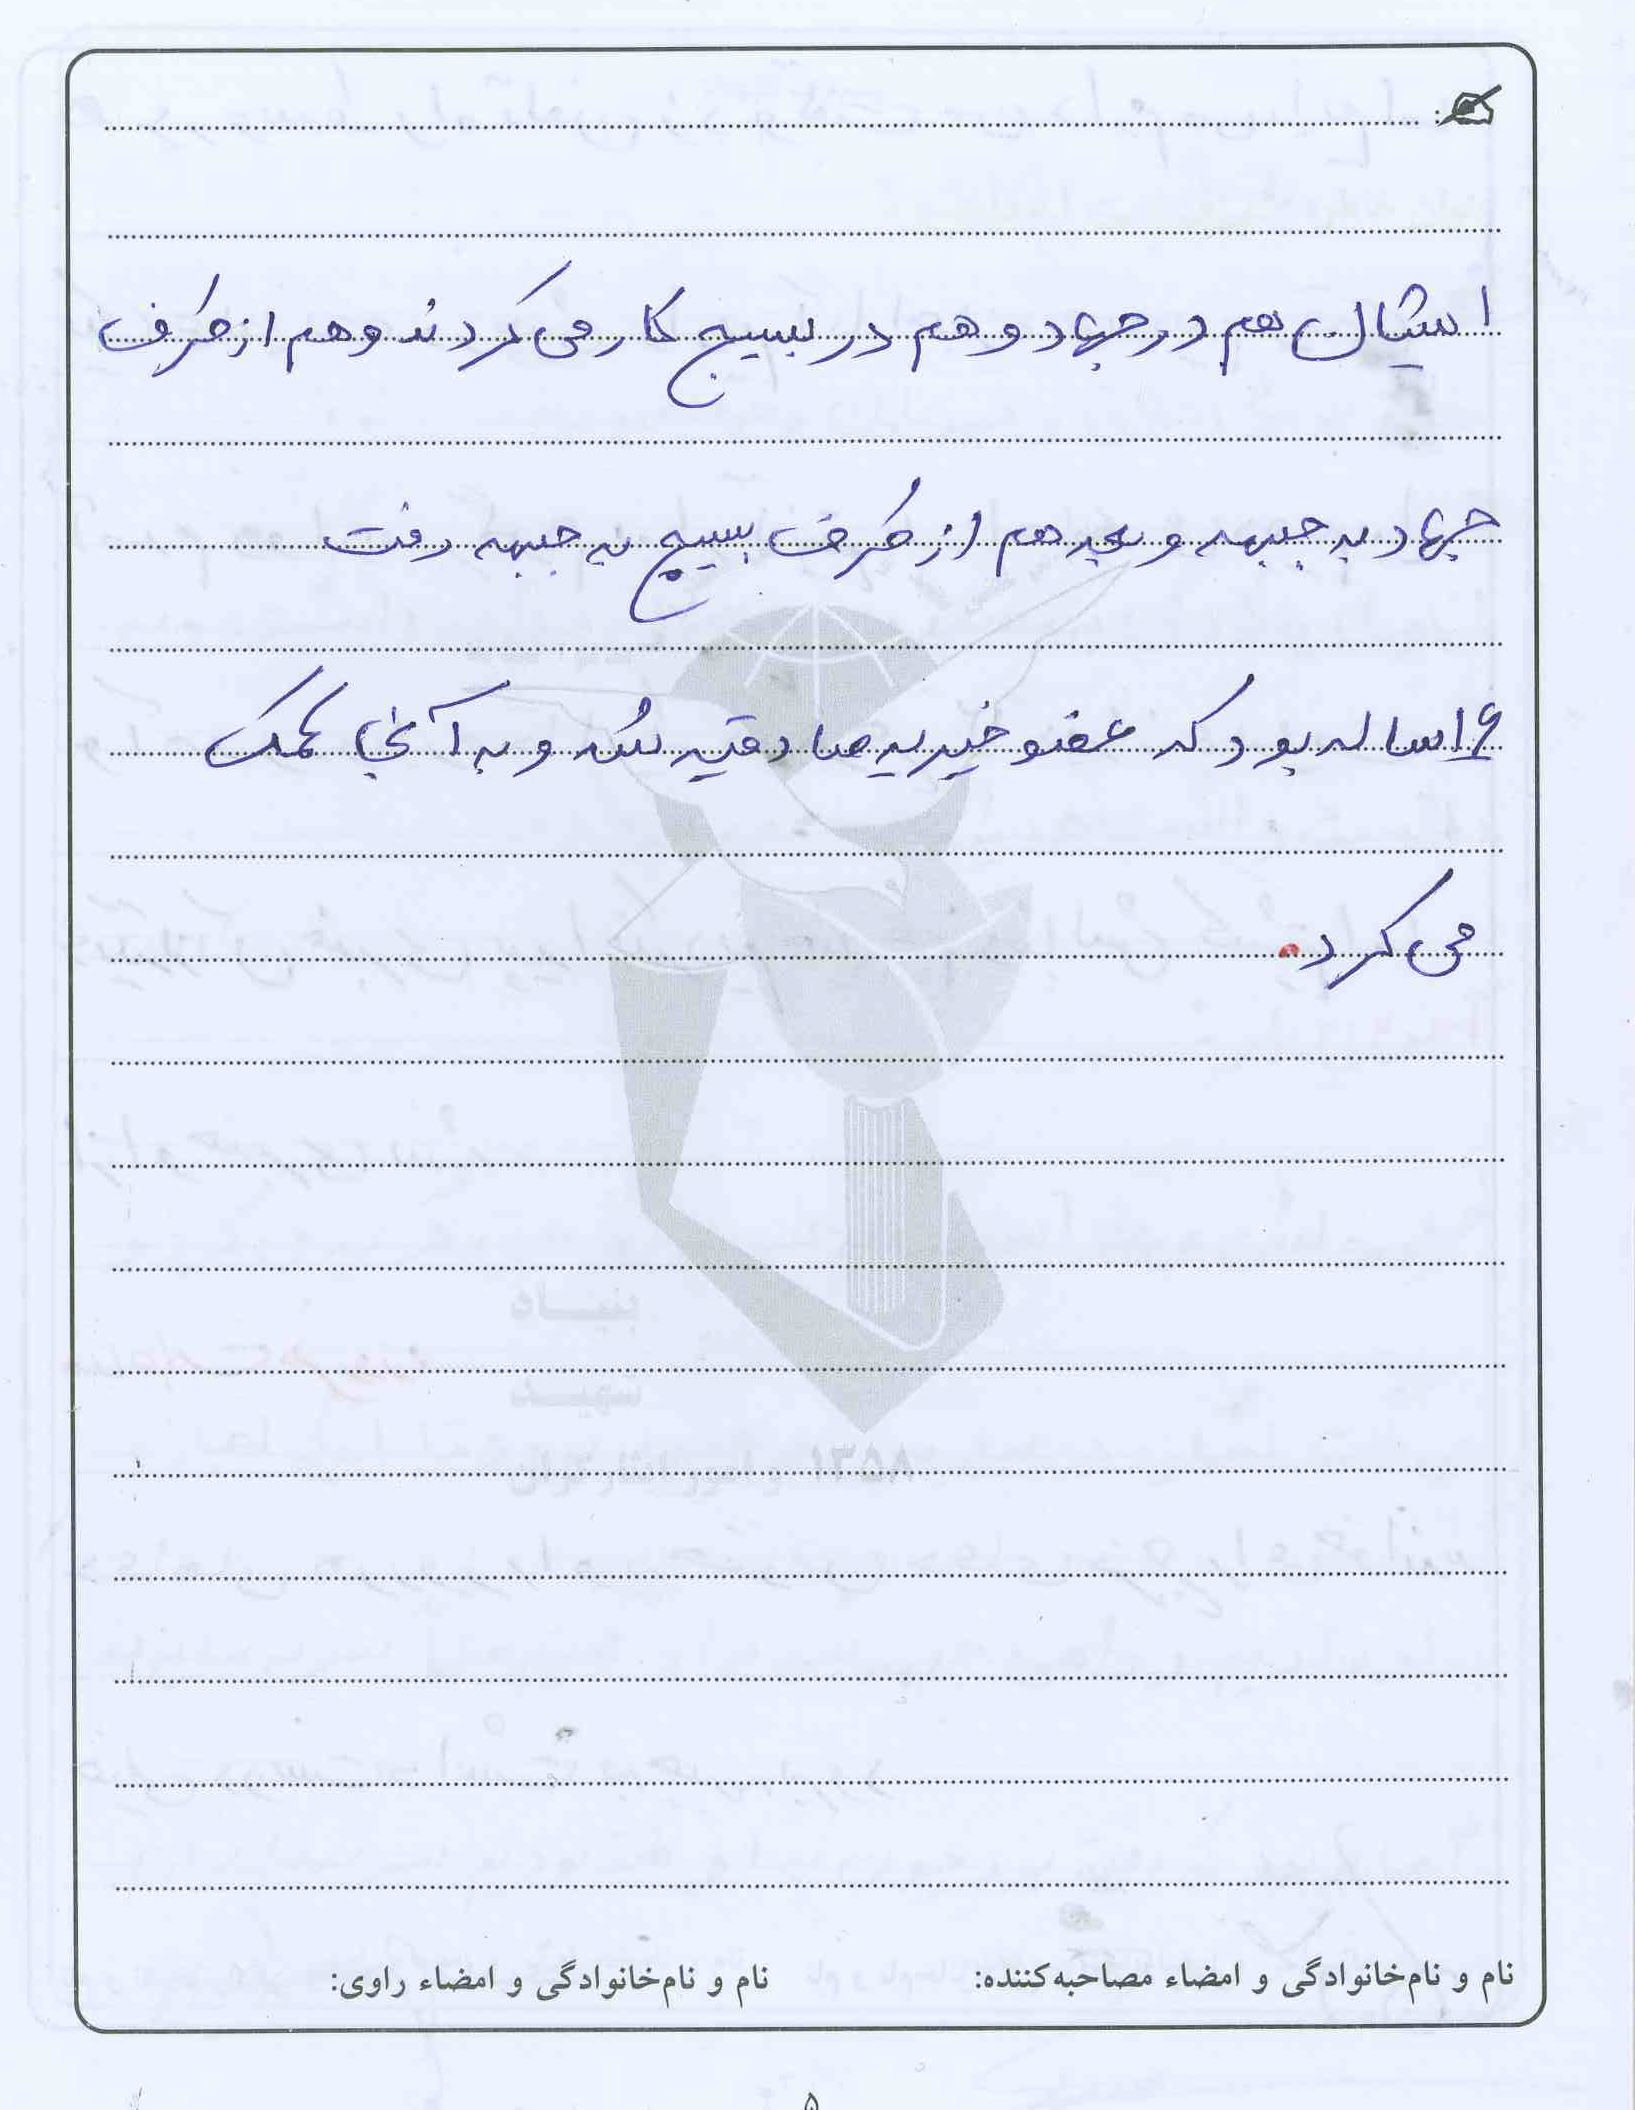 ایشان هم در جهاد و هم در بسیج کار می کردند و هم از طرف
جهاد به جبهه و بعد هم از طرف بسیج به جبهه رفت
۱۶ ساله بود که عضو خیریه صادقیه شد و به آنجا کمک
می کرد.
بنیاد
شهید
۱۳۵۸ و امور ایثارگران
نام و نام‌خانوادگی و امضاء مصاحبه‌کننده: نام و نام‌خانوادگی و امضاء راوی:
۵